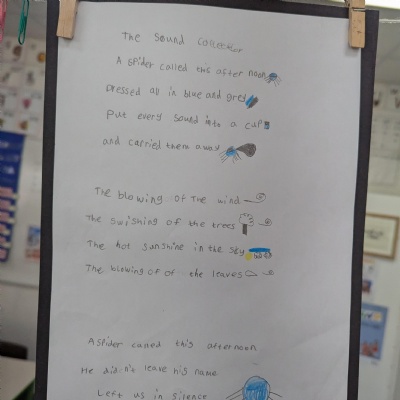 The Sound Collector
A spider called this after noon
Dressed all in blue and grey
Put every sound into a cup
and carried them away
The blowing of The wind
The swishing of the trees
The hot sunshine in the sky
The blowing of of the leaves
A spider called this afternoon
He didn't leave his name
Left us in silence